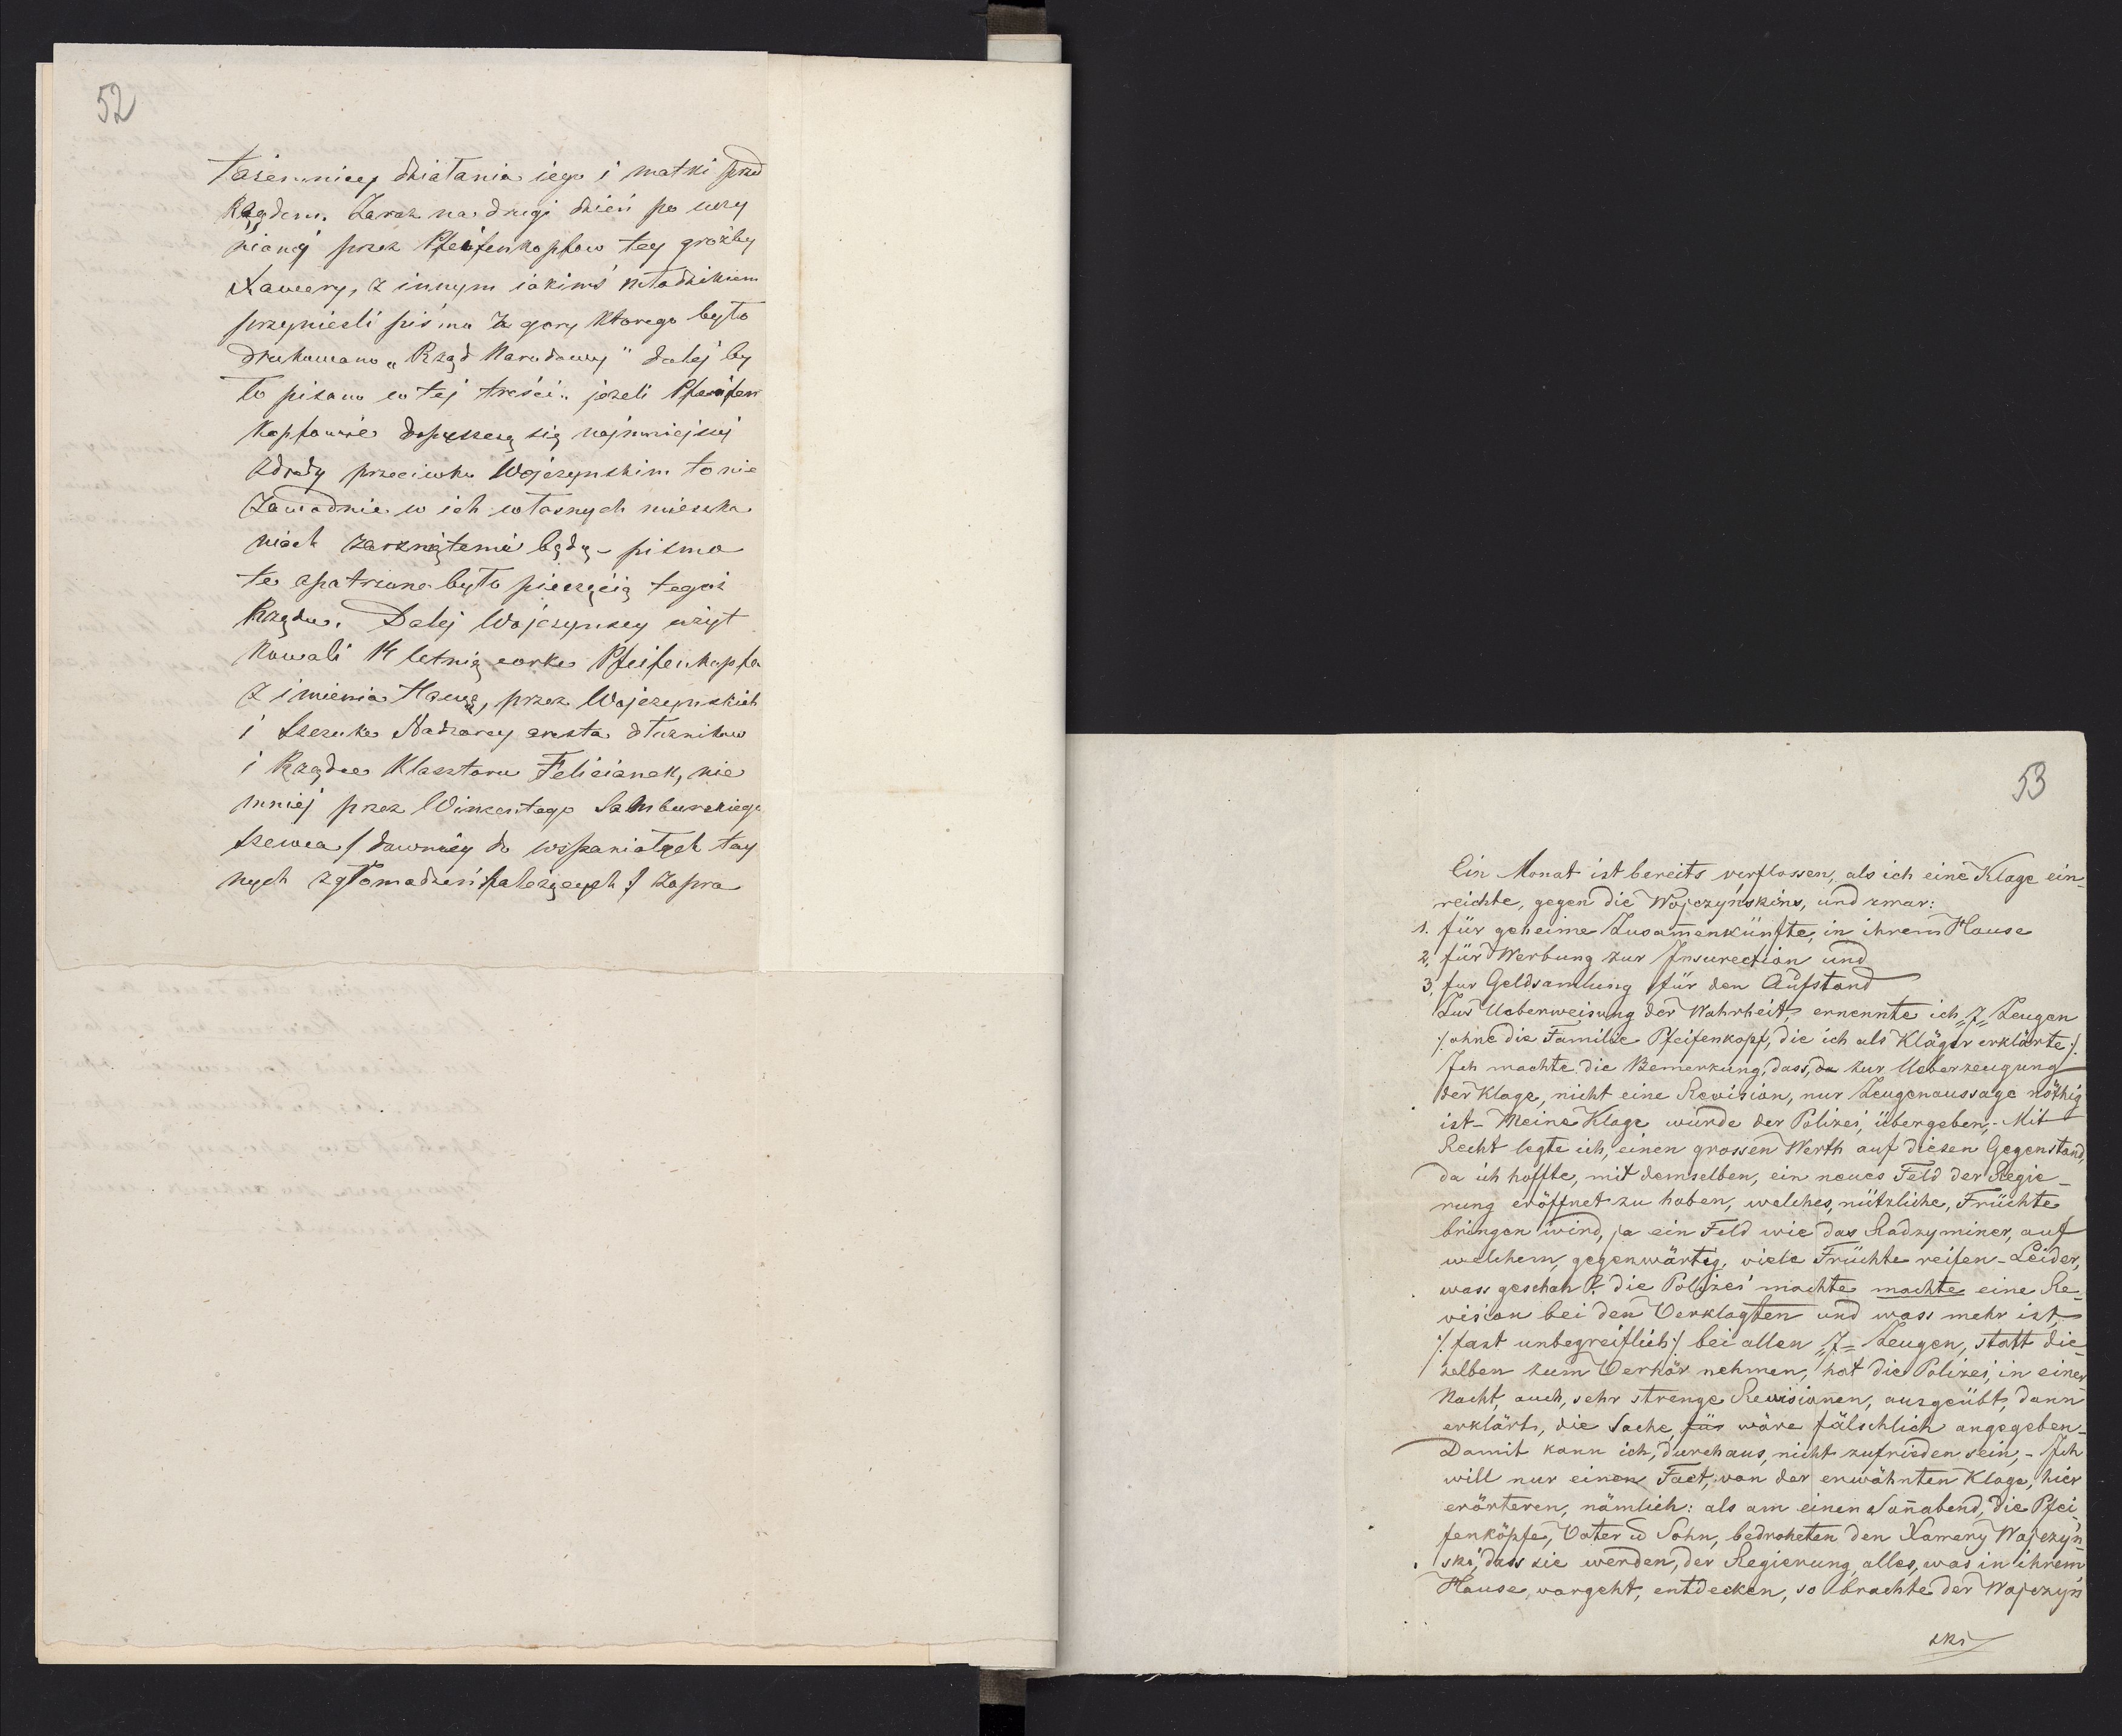 52
tajemnicy działania iego i matki przed
Rządem. Zaraz na drugi dzień po uczy
nionej przez Pfeifenkopfow tey groźby
Xawery, z innym iakimś młodzikiem
przynieśli pismo Za gory ktorego było
drukowano „Rząd Narodowy" dalej by
ło pisano w tej treści „jezeli Pfeifen
kopfowie dopuszczą się najmniejszej
zdrady przeciwko Wojczynskim to nie
zawodnie w ich własnych mieszka
niach zarzniętemi będą - pismo
te opatrzone było pieczęcią tegoż
Rządu. Dalej Wojczynscy użyt
kowali 14 letnią corke Pfeifenkopfa
z imienia , przez Wojczynskich
i Szczuke Nadzorcy aresta dłuznikow
i Rządce Klasztoru Felicianek, nie
mniej przez Wincentego Samburskiego
szewca / dawniey do wspaniałych tay
nych zgromadzeń należących / zapra
53
Ein Monat ist bereits verflossen, als ich eine Klage ein-
reichte, gegen die Wojczyńskins, und zwar:
1. für geheime Zusam̄enkünfte, in ihrem Hause
2. für Werbung zur Insurection und
3. fur Geldsamlung für den Aufstand
Zur Ueberweisung der Wahrheit, ernennte ich „7„ Zeugen
:/ ohne die Familie Pfeifenkopf, die ich als Kläger erklärte /:
Ich machte die Bemerkung, dass, da zur Ueberzeugung
der Klage, nicht eine Revision, nur Zeugenaussage nöthig
ist - Meine Klage wurde der Polizei, übergeben, - Mit
Recht legte ich, einen grossen Werth auf diesen Gegenstand,
da ich hoffte, mit demselben, ein neues Feld der Regie-
rung eröffnet zu haben, welches, nützliche, Früchte
bringen wird, ja ein Feld wie das Radzyminer, auf
welchem, gegenwärtig, viele Früchte reifen - Leider,
wass geschah? die Polizei machte machte eine Re-
vision bei den Verklagten und wass mehr ist,
:/ fast unbegreiflich :/ bei allen „7„ Zeugen, statt die-
selben zum Verhör nehmen, hat die Polizei, in einer
Nacht, auch, sehr strenge Revisionen, ausgeübt, dann
erklärt, die Sache, für wäre fälschlich angegeben -
Damit kann ich, durchaus, nicht zufrieden sein, - Ich
will nur einen Fact, von der erwähnten Klage, hier
erörteren, nämlich: als am einen Son̄abend, die Pfei-
fenköpfe, Vater u Sohn, bedroheten den Xawery Wojczyń-
ski, dass sie werden, der Regierung, alles, was in ihrem
Hause, vorgeht, entdecken, so brachte der Wojczyń
ski